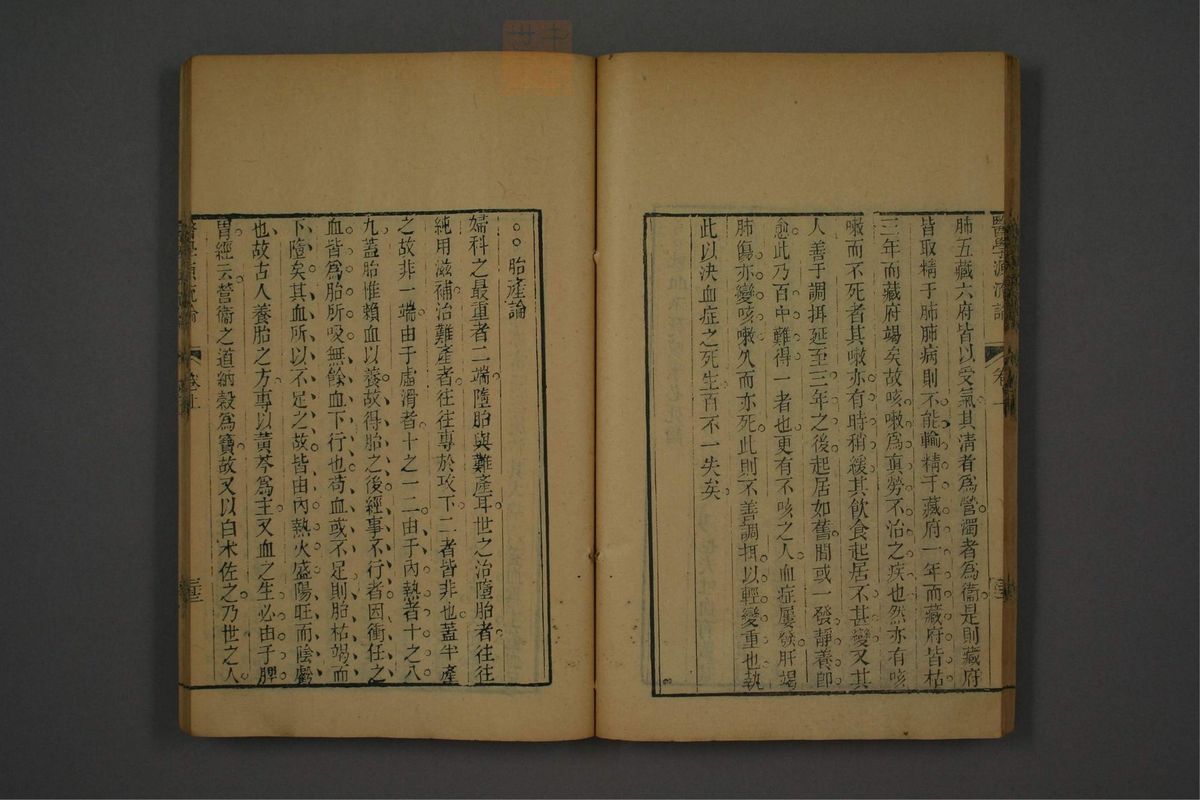 醫學源流論
肺五藏六府皆以受氣其淸者爲營濁者爲衞是則藏府
皆取精于肺肺病則不能輸精于藏府一年而藏府皆枯
三年而藏府竭矣故咳嗽爲眞勞不治之疾也然亦有咳
嗽而不死者其嗽亦有時稍緩其飮食起居不甚變又其
人善于調攝延至三年之後起居如舊間或一發靜養卽
愈此乃百中難得一者也更有不咳之人血症屢發肝竭
肺傷亦變咳嗽久而亦死此則不善調攝以輕變重也執
此以決血症之死生百不一失矣
胎產論
婦科之最重者二端墮胎與難產耳世之治墮胎者往往
純用滋補治難產者往往專於攻下二者皆非也蓋半產
之故非一端由于虛滑者十之一二由于內熱者十之八
九蓋胎惟賴血以養故得胎之後經事不行者因衝任之
血皆爲胎所吸無餘血下行也苟血或不足則胎枯竭而
下墮矣其血所以不足之故皆由內熱火盛陽旺而陰虧
也故古人養胎之方專以黃芩爲主又血之生必由于脾
胃經云營衞之道納穀爲寶故又以白朮佐之乃世之人